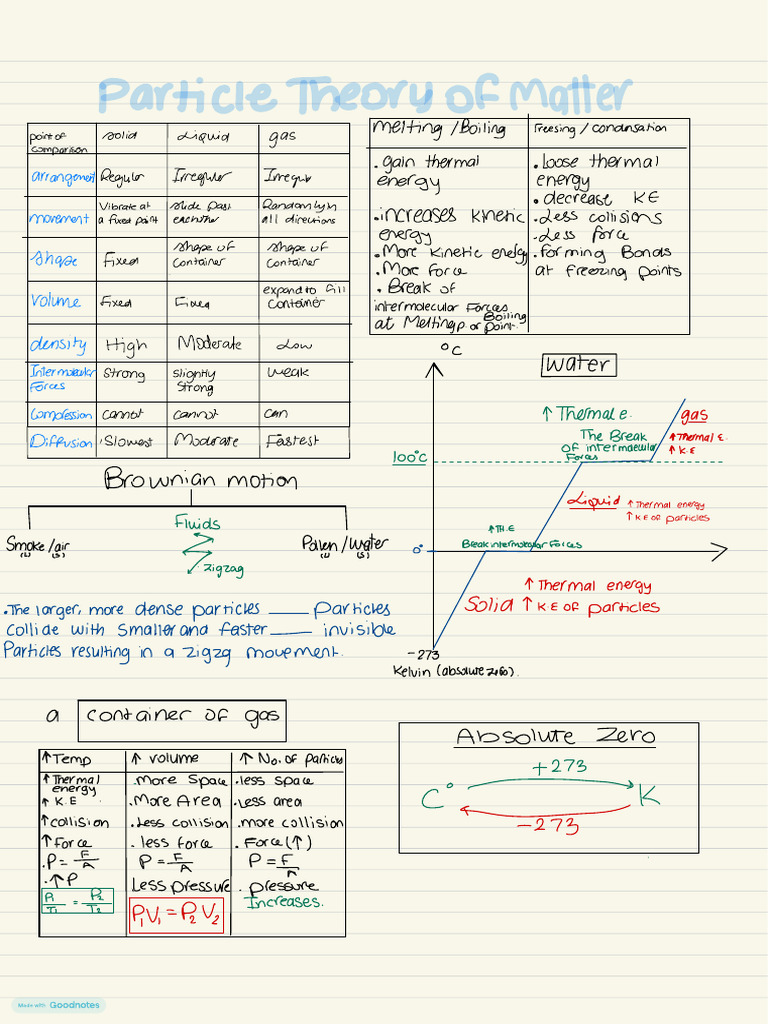 Particle Theory of Matter
point of comparison solid Liquid gas
arrangement Regular Irregular Irregular
movement Vibrate at a fixed point slide past eachother Randomly in all directions
shape Fixed shape of container shape of container
volume Fixed Fixed expand to fill container
density High Moderate Low
Intermolecular Forces strong slightly strong weak
Compression cannot cannot can
Diffusion Slowest Moderate Fastest
melting / Boiling
• gain thermal
energy
• increases kinetic
energy
• More kinetic energy
• More force
• Break of
intermolecular Forces
at Melting p or Boiling point.
Freesing / condensation
• loose thermal
energy
• decrease KE
• Less collisions
• Less force
• forming Bonds
at freezing points
°C
water
↑ Thermal e.
The Break
of intermolecular
Forces
gas
↑ Thermal E.
↑ K.E
100°c
Liquid
↑ Thermal energy
↑ K.E of particles
↑ TH.E
Break intermolecular Forces
0°
↑ Thermal energy
Solid ↑ K.E of particles
-273
Kelvin (absolute zero).
Brownian motion
Smoke/air
(L) (S)
Fluids
zigzag
Pollen/water
(L) (S)
• The larger, more dense particles ____ Particles
collide with smaller and faster ____ invisible
Particles resulting in a zigzg movement.
a container of gas
↑ Temp
↑ Thermal
energy
↑ K.E
↑ collision
↑ force
• P = F/A
• ↑ P
P1/T1 = P2/T2
↑ volume
• More Space
• More Area
• Less collision
• less force
P = F/A
Less pressure
P1V1 = P2V2
↑ No. of particles
• less space
• Less area
• more collision
• Force (↑)
P = F/A
• pressure
Increases.
Absolute Zero
+273
C° K
-273
Made with Goodnotes